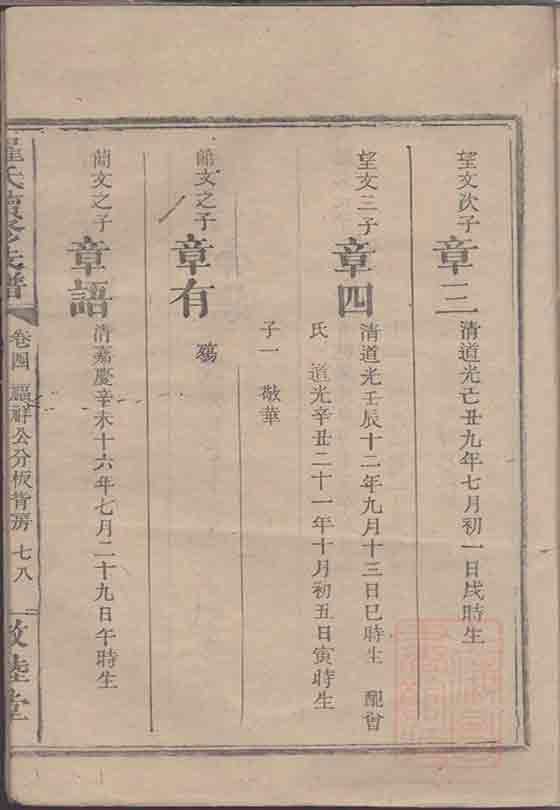 望文次子
章三
清道光亡丑九年七月初一日戌時生
望文三子
章四
清道光壬辰十二年九月十三日巳時生 配曾
氏 道光辛丑二十一年十月初五日寅時生
子一 敬華
蘭文之子
章有
蘭文之子
章語
清嘉慶辛未十六年七月二十九日午時生
氏續修族譜
卷四 福祥公分板背房 七八
敦睦堂